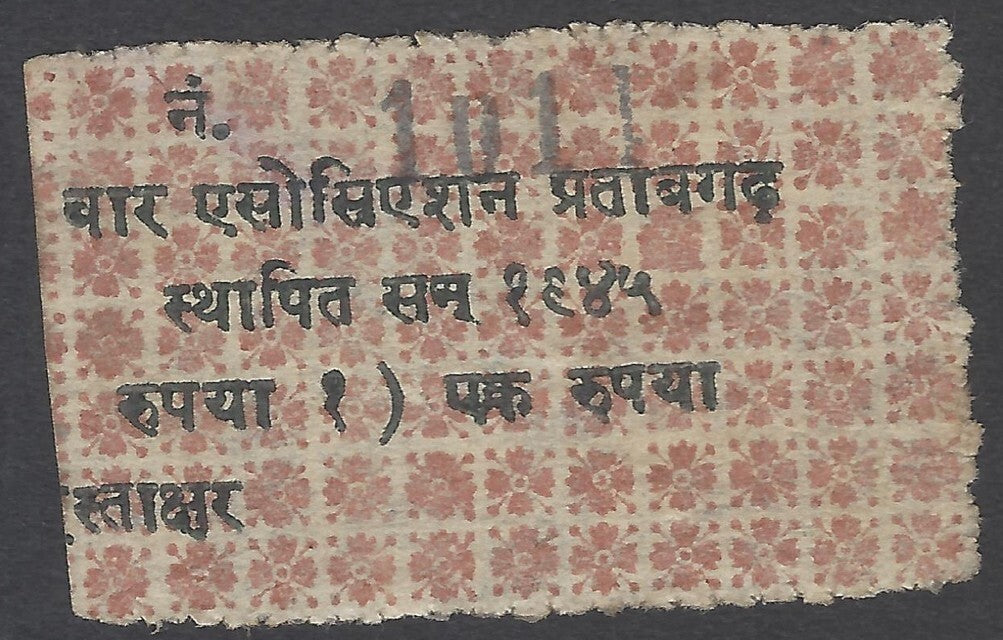 नं. 1011
बार एसोसिएशन प्रताबगढ़
स्थापित सम् १९४५
रुपया १ ) एक रुपया
स्ताक्षर